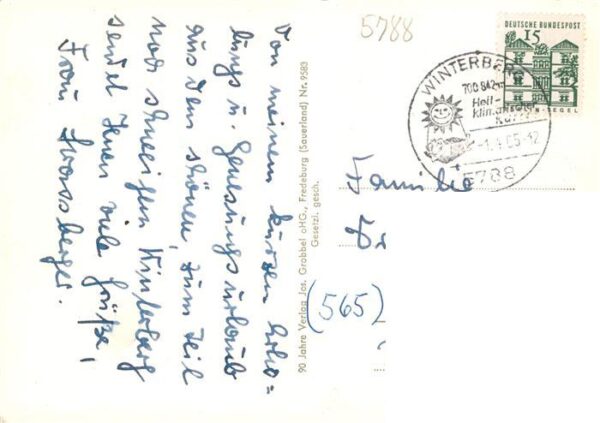 Von meinem kurzen Erho=
lungs u. Genesungsurlaub
aus dem schönen, zum Teil
noch schneeigen Winterberg
sendet Ihnen viele Grüße,
Frau
90 Jahre Verlag Jos. Grobbel oHG., Fredeburg (Sauerland) Nr. 9583
Gesetzl. gesch.
5788
DEUTSCHE BUNDESPOST
15
TEGEL
WINTERBERG
700 842 m
Heil-
klimatischer
Kurort
5788
Familie
Dr
(565)